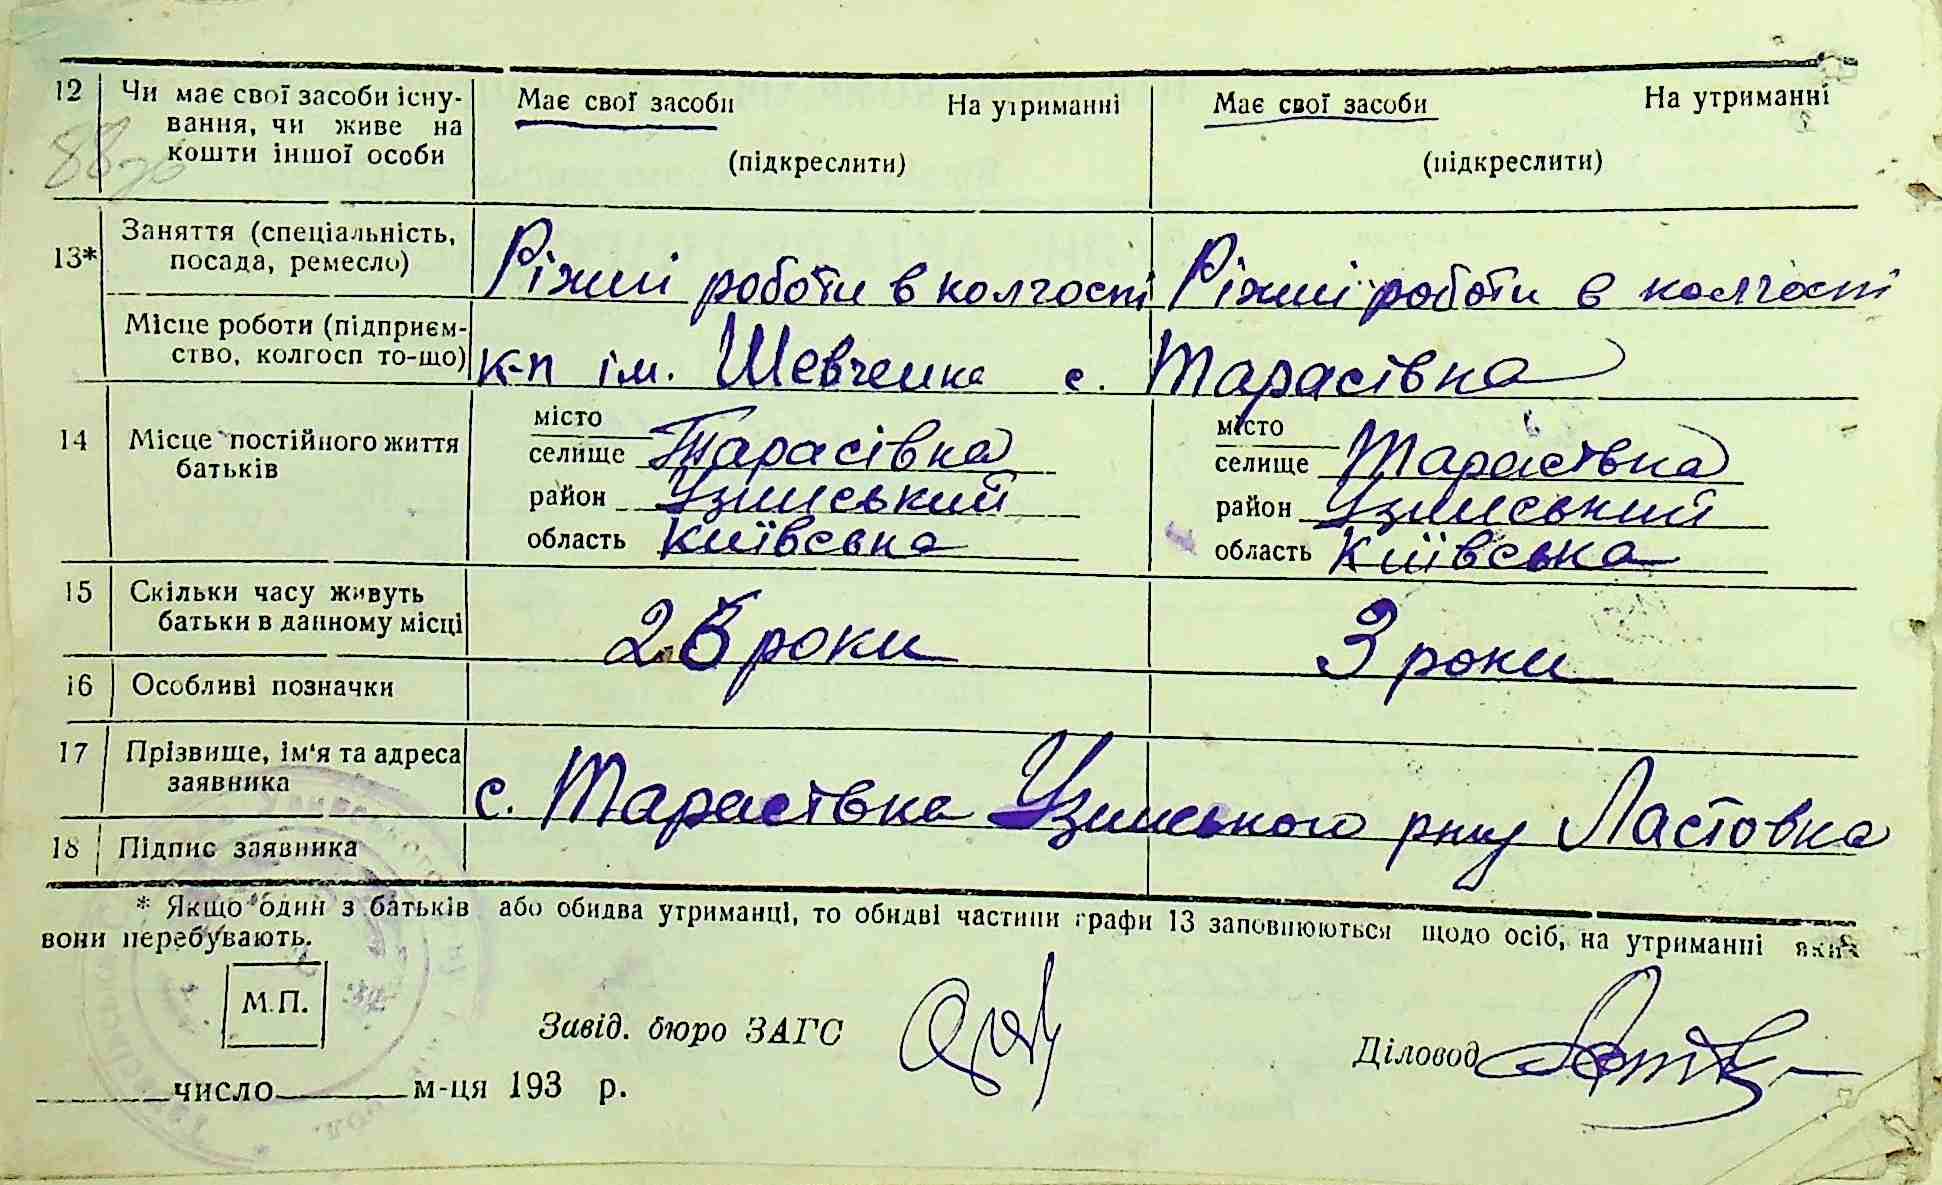 12 Чи має свої засоби існу- Має свої засоби На утриманні Має свої засоби На утриманні
вання, чи живе на
кошти іншої особи (підкреслити) (підкреслити)
13* Заняття (спеціальність,
посада, ремесло) Ріжні роботи в колгоспі Ріжні роботи в колгоспі
Місце роботи (підприєм-
ство, колгосп то-що) к-п ім. Шевченка с. Тарасівка
14 Місце постійного життя
батьків
місто місто
селище Тарасівка селище Тарасівка
район Узинський район Узинський
область Київська область Київська
15 Скільки часу живуть
батьки в данному місці роки 3 роки
16 Особливі позначки
17 Прізвище, ім'я та адреса
заявника с. Тарасівка Узинського рну Ластовка
18 Підпис заявника
* Якщо один з батьків або обидва утриманці, то обидві частини графи 13 заповнюються щодо осіб, на утриманні яких
вони перебувають.
М.П.
Завід. бюро ЗАГС
Діловод
число м-ця 193 р.